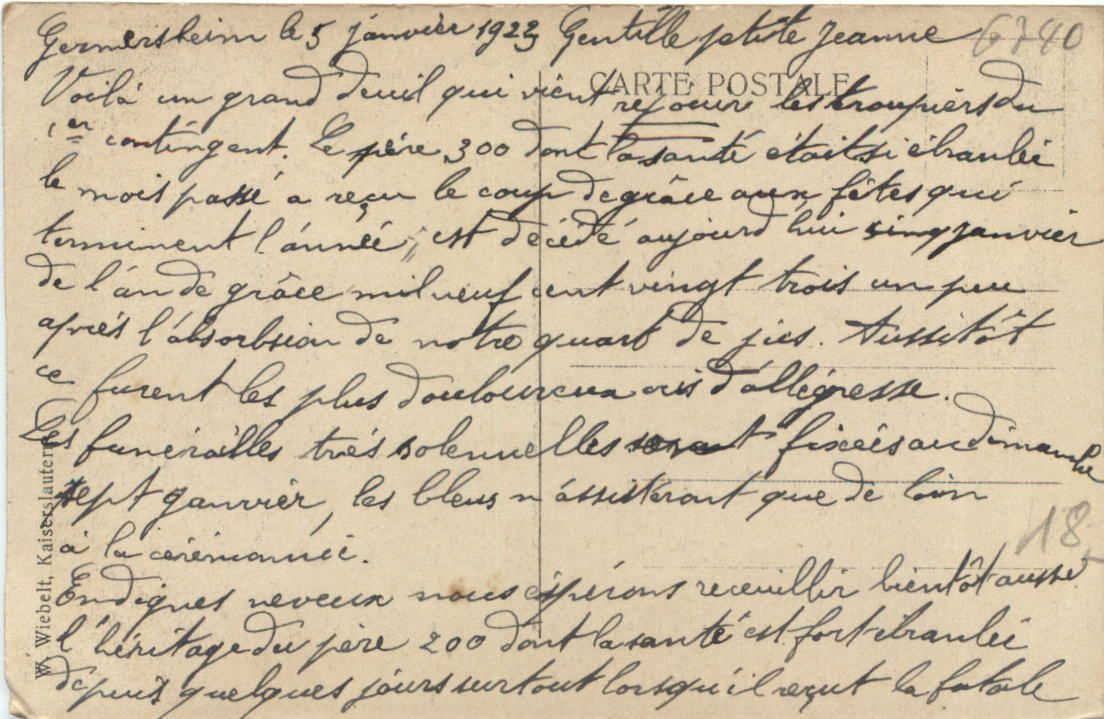 Germersheim le 5 janvier 1923 Gentille ptite Jeanne
6740
CARTE POSTALE
Voilà un grand deuil qui vient réjouir les troupiers du
1er contingent. Le père 300 dont la santé était si ébranlée
le mois passé a reçu le coup de grâce aux fêtes qui
terminent l'année, est décédé aujourd'hui cinq janvier
de l'an de grâce mil neuf cent vingt trois un peu
après l'absorbsion de notre quart de jus. Aussitôt
ce furent les plus douloureux cris d'allégresse.
Les funérailles très solennelles seront fixées au dimanche
sept janvier, les bleus n'assisteront que de loin
à la cérémonie.
18
En dignes neveux nous éspérons receuillir bientôt aussi
l'héritage du père 200 dont la santé est fort ébranlée
depuis quelques jours surtout lorsqu'il reçut la fatale
W. Wiebelt, Kaiserslautern